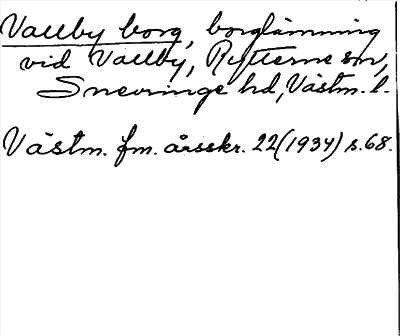 Vallby borg, borglämning
vid Vallby, Rytterne sn,
Snevringe hd, Västm. l.
Västm. fm. årsskr. 22 (1934) s. 68.